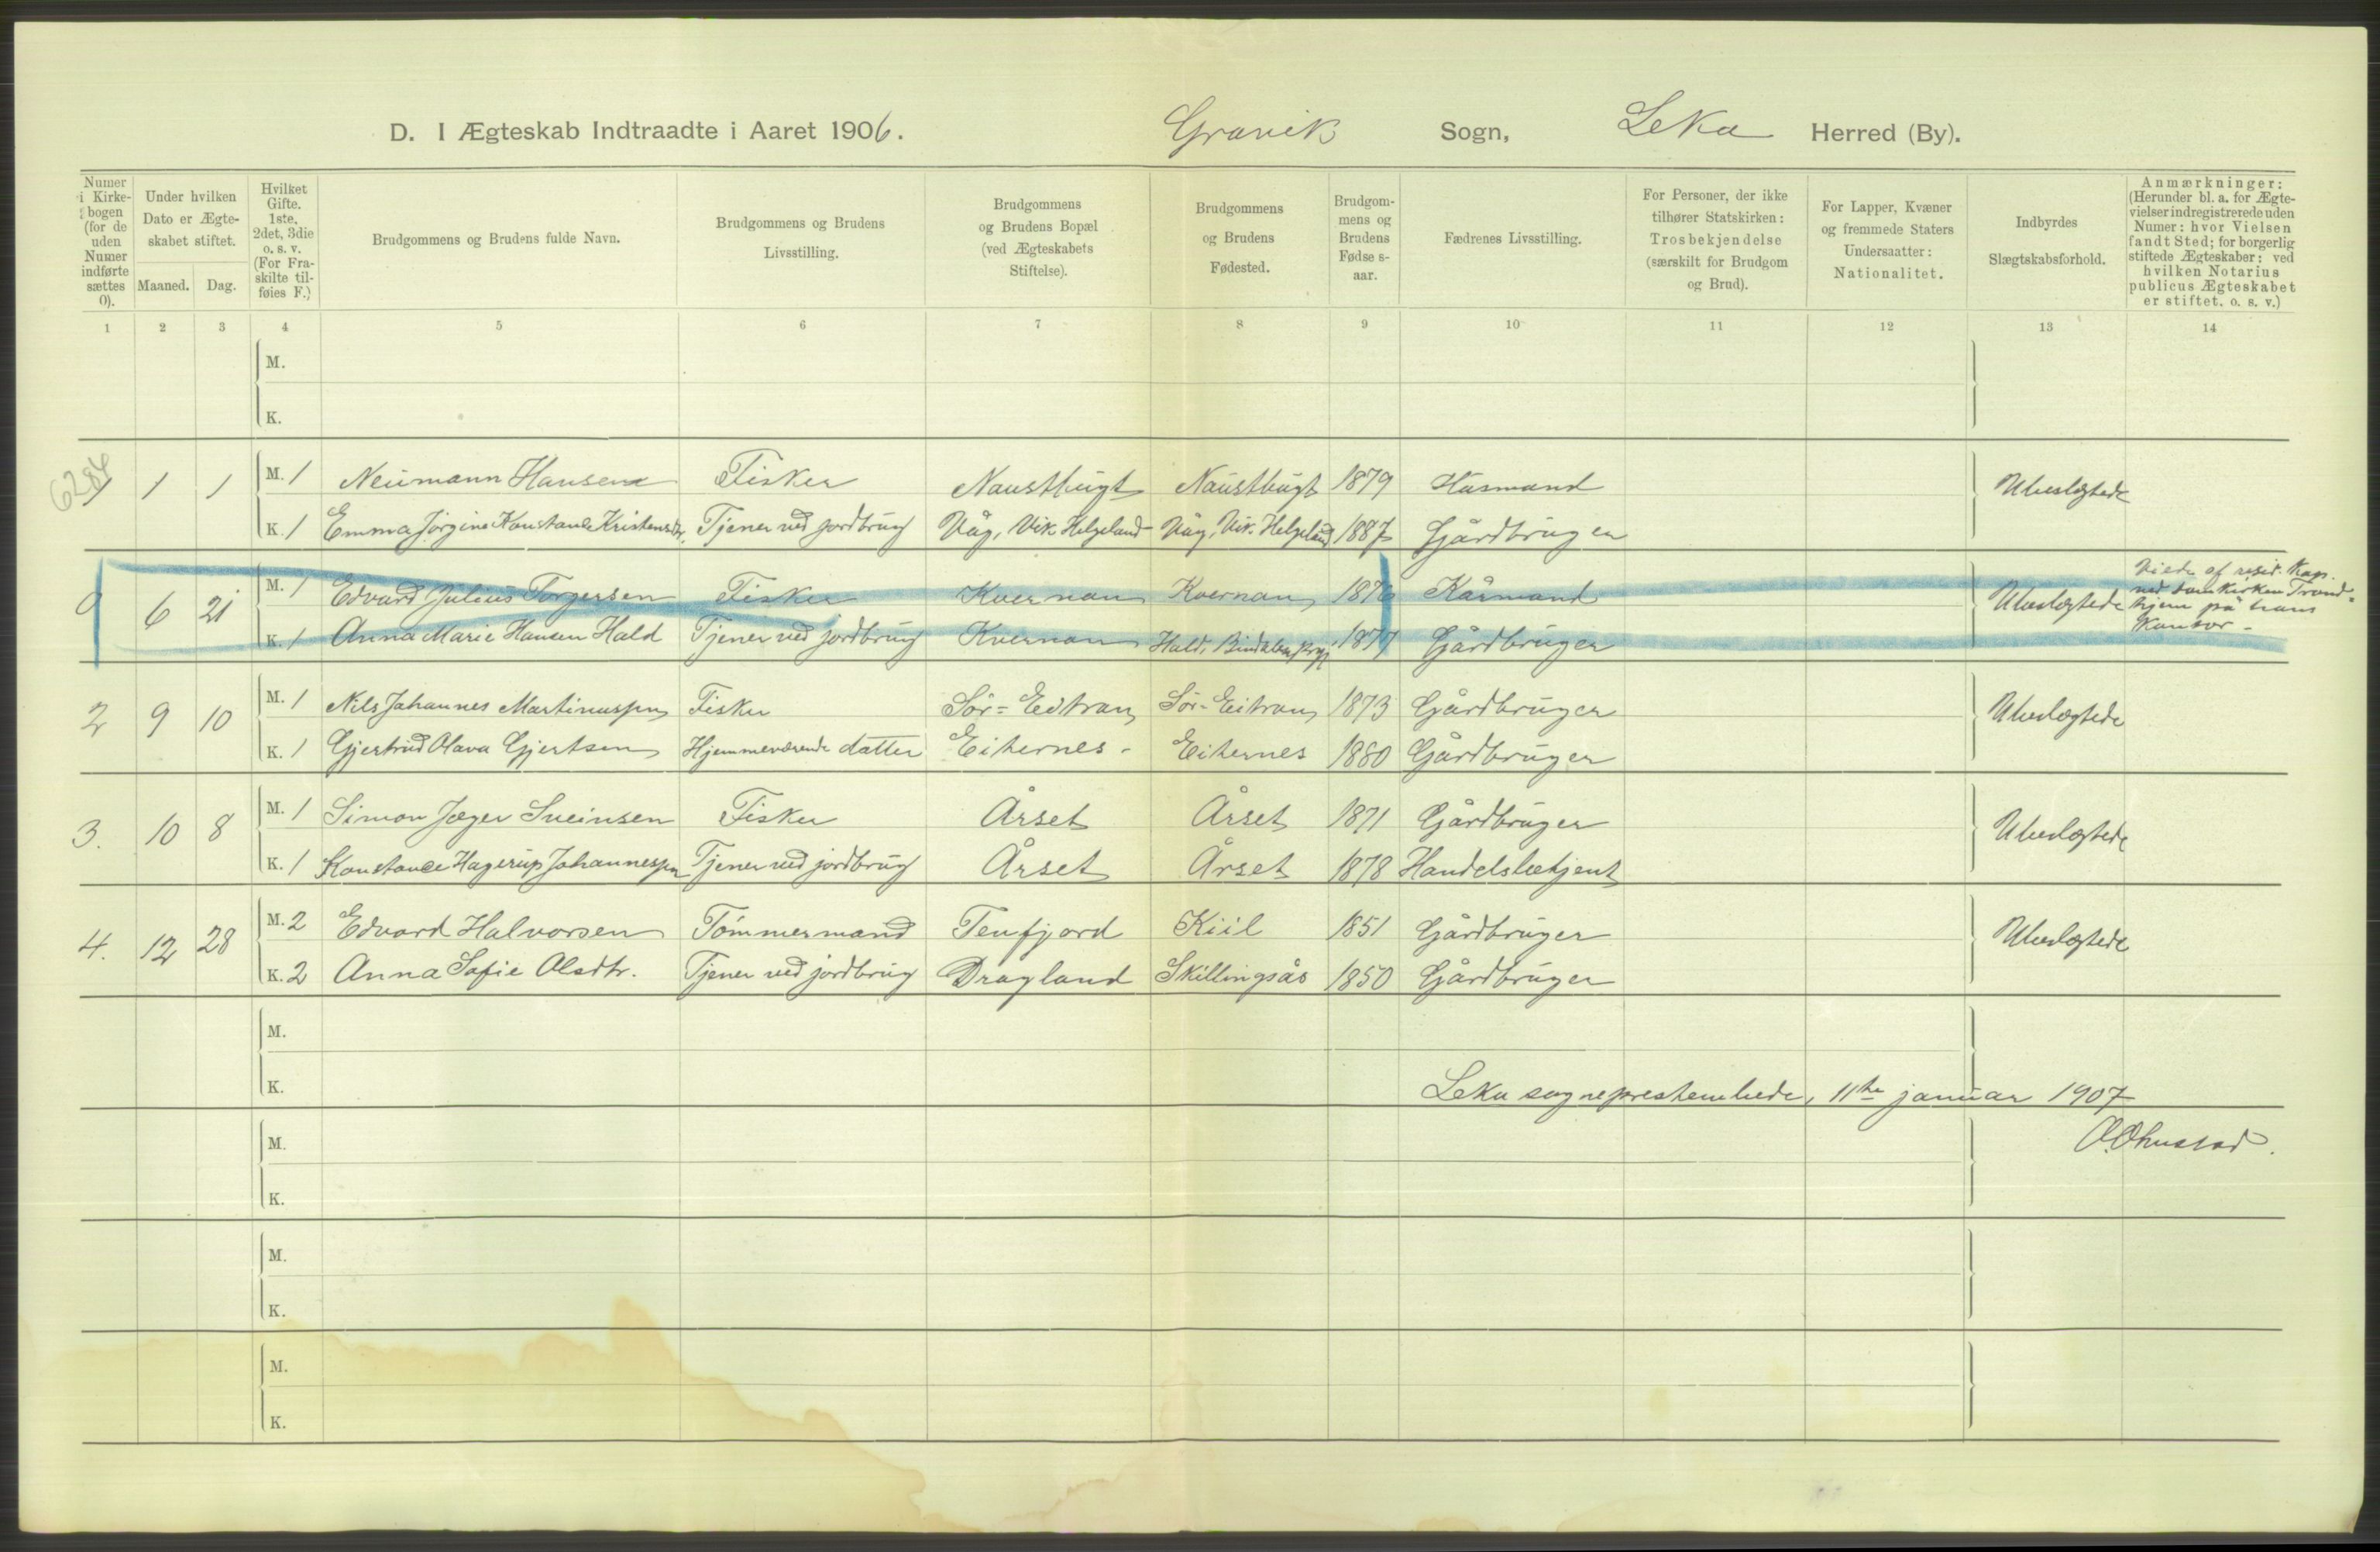 D. I Ægteskab Indtraadte i Aaret 1906. Gravik Sogn, Leka Herred (By).
Numer i Kirkebogen (for de uden Numer indførte sættes 0).
Under hvilken Dato er Ægteskabet stiftet.
Maaned. Dag.
Hvilket Gifte. 1ste, 2det, 3die o. s. v. (For Fraskilte tilføies F.)
Brudgommens og Brudens fulde Navn.
Brudgommens og Brudens Livsstilling.
Brudgommens og Brudens Bopæl (ved Ægteskabets Stiftelse).
Brudgommens og Brudens Fødested.
Brudgommens og Brudens Fødses-aar.
Fædrenes Livsstilling.
For Personer, der ikke tilhører Statskirken: Trosbekjendelse (særskilt for Brudgom og Brud).
For Lapper, Kvæner og fremmede Staters Undersaatter: Nationalitet.
Indbyrdes Slægtskabsforhold.
Anmærkninger: (Herunder bl. a. for Ægtevielser indregistrerede uden Numer: hvor Vielsen fandt Sted; for borgerlig stiftede Ægteskaber: ved hvilken Notarius publicus Ægteskabet er stiftet. o. s. v.)
1 2 3 4 5 6 7 8 9 10 11 12 13 14
M.
K.
6284
1 1 1 M. 1 Neumann Hansen Fisker Naustbugt Naustbugt 1879 Husmand Ubeslægtede
K. 1 Emma Jørgine Konstance Kristensdtr. Tjener ved jordbrug Våg, Vik Helgeland Våg, Vik. Helgeland 1887 Gårdbruger
0 6 21 M. 1 Edvard Julius Torgersen Fisker Kvernan Kvernan 1876 Kårmand Ubeslægtede Viede af resid. Kap. ved domkirken Trondhjem på hans Kontor -
K. 1 Anna Marie Hansen Hald Tjener ved jordbrug Kvernan Hald, Bindalen Prgj. 1877 Gårdbruger
2 9 10 M. 1 Nils Johannes Martinussen Fisker Sør-Eitran Sør-Eitran 1873 Gårdbruger Ubeslægtede
K. 1 Gjertrud Olava Gjertsen Hjemmeværende datter Eiternes - Eiternes 1880 Gårdbruger
3. 10 8 M. 1 Simon Jæger Sveinsen Fisker Årset Årset 1871 Gårdbruger Ubeslægtede
K. 1 Konstance Hagerup Johannessen Tjener ved jordbrug Årset Årset 1878 Handelsbetjent
4. 12 28 M. 2 Edvard Halvorsen Tømmermand Terfjord Kiil 1851 Gårdbruger Ubeslægtede
K. 2 Anna Sofie Olsdtr. Tjener ved jordbrug Dragland Skillingsås 1850 Gårdbruger
M.
K.
Leka sogneprestembede, 11te januar 1907
M.
K.
M.
K.
M.
K.